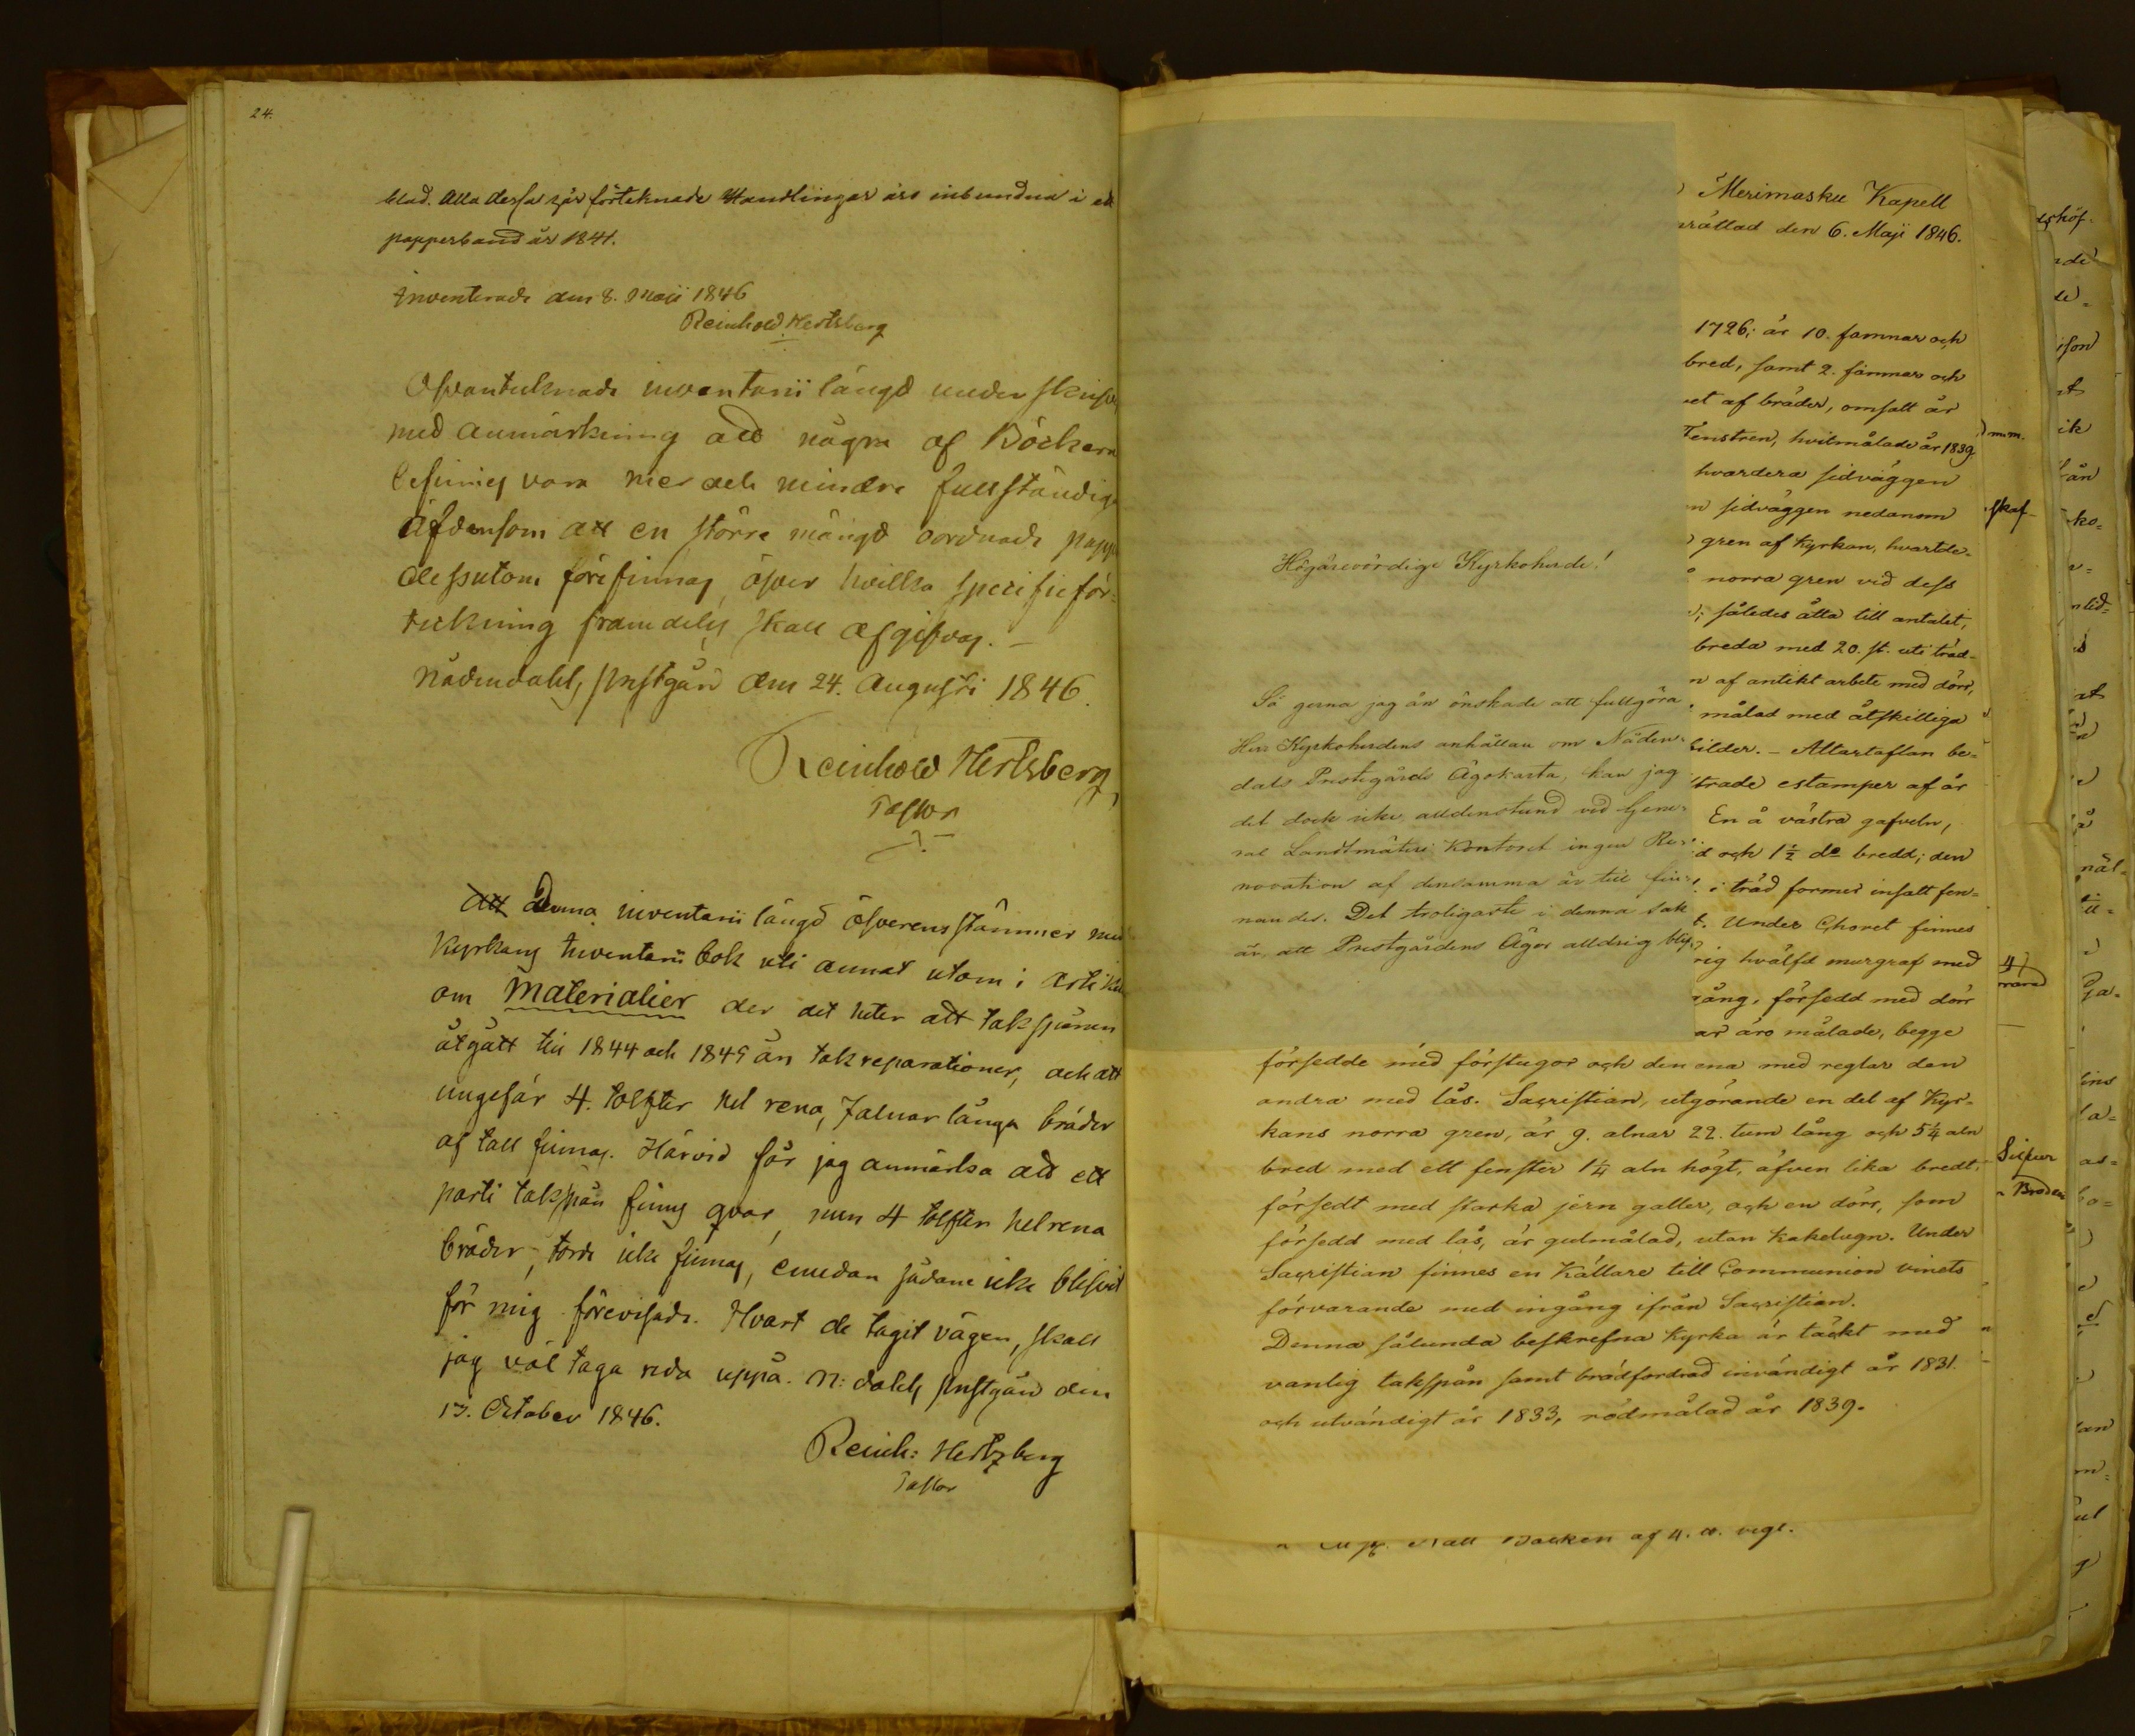 24.
blad. Alla dessa här förteknade Handlingar äro inbundna i ett
papperband år 1841.
Inventerade den 8. Maji 1846
Reinhold Hertsberg
Ofvantecknade inventarii längd underskrifves
med anmärkning att några af Böckerna
befinnes vara mer och mindre fullständiga
äfvensom att en större mängd oordnade papper
dessutom förefinnas, öfver hvilka specifieför-
teckning framdeles skall afgifvas. –
Nådendahls prestgård den 24. Augusti 1846.
Reinhold Hertsberg
Pastor
Att denna inventarii längd öfverensstämmer med
Kyrkans Inventarii bok uti annat utom i Artikeln
om Materialier der det heter att takspånen
åtgått till 1844 och 1845 års takreparationer, och att
ungefär 4. tolfter hel rena, 7 alnar långa bräder
af tall finnas. Härvid får jag anmärka att ett
parti takspån finnes qvar, men 4 tolfter helrena
bräder, torde icke finnas, emedan sådane icke blifvit
för mig förevisade. Hvart de tagit vägen, skall
jag väl taga reda uppå. N:dahls prestgård den
13. October 1846.
Reinh: Hertzberg
Pastor
Merimasku Kapell
rättad den 6. Maji 1846.
1726; är 10. famnar och
bred, samt 2. famnar och
et af bräder, omsatt år
Fenstren, hvitmålade år 1839.
hvardera sidväggen
n sidväggen nedanom
gren af Kyrkan, hvartde-
norra gren vid dess
; således åtta till antalet,
breda med 20. st. uti träd-
n af antikt arbete med dörr,
målad med åtskilliga
bilder. – Altartaflan be-
trade estamper af år
En å västra gafveln,
d och 1½ do bredd; den
i träd former insatt fen-
t. Under Choret finnes
rig hvälfd murgraf med
gång, försedd med dörr
ar äro målade, begge
Högärevördige Kyrkoherde!
Så gerna jag än önskade att fullgöra
Herr Kyrkoherdens anhållan om Nåden-
dals Prestegårds Ägokarta, kan jag
det dock icke alldenstund vid Gene-
ral Landtmäteri Kontoret ingen Re-
novation af densamma är till fin-
nandes. Det troligaste i denna sak
är, att Prestgårdens Ägor alldrig bly-
försedde med förstugor och den ena med reglar den
andra med lås. Sacristian, utgörande en del af Kyr-
kans norra gren, är 9. alnar 22. tum lång och 5¼ aln
bred med ett fenster 1¼ aln högt, äfven lika bredt,
försedt med starka jern galler, och en dörr, som
försedd med lås, är gulmålad, utan Kakelugn. Under
Sacristian finnes en Källare till Communion vinets
förvarande med ingång ifrån Sacristian.
Denna sålunda beskrefna Kyrka är täckt med
vanlig takspån samt brädfordrad invändigt år 1831.
och utvändigt år 1833, rödmålad år 1839.
af 4. a. vegt.